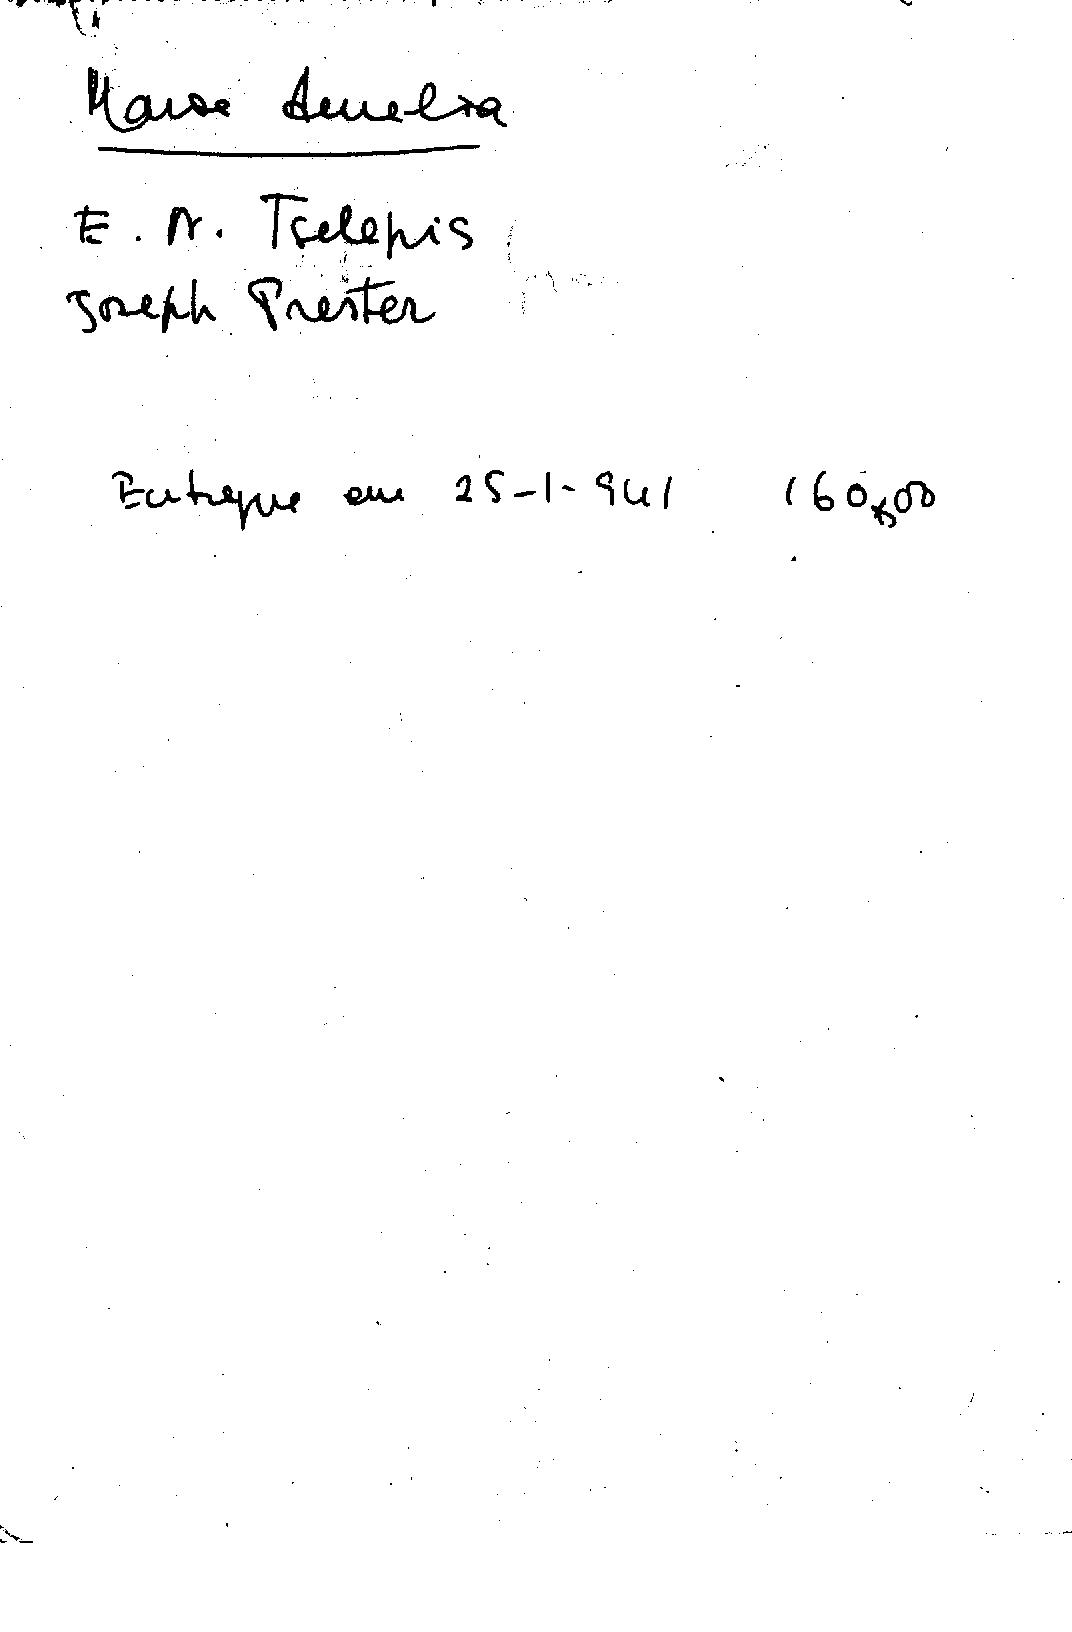 Maria Amelia
E. N. Tselepis
Joseph Prester
Entregue em 25-1-941 160$00